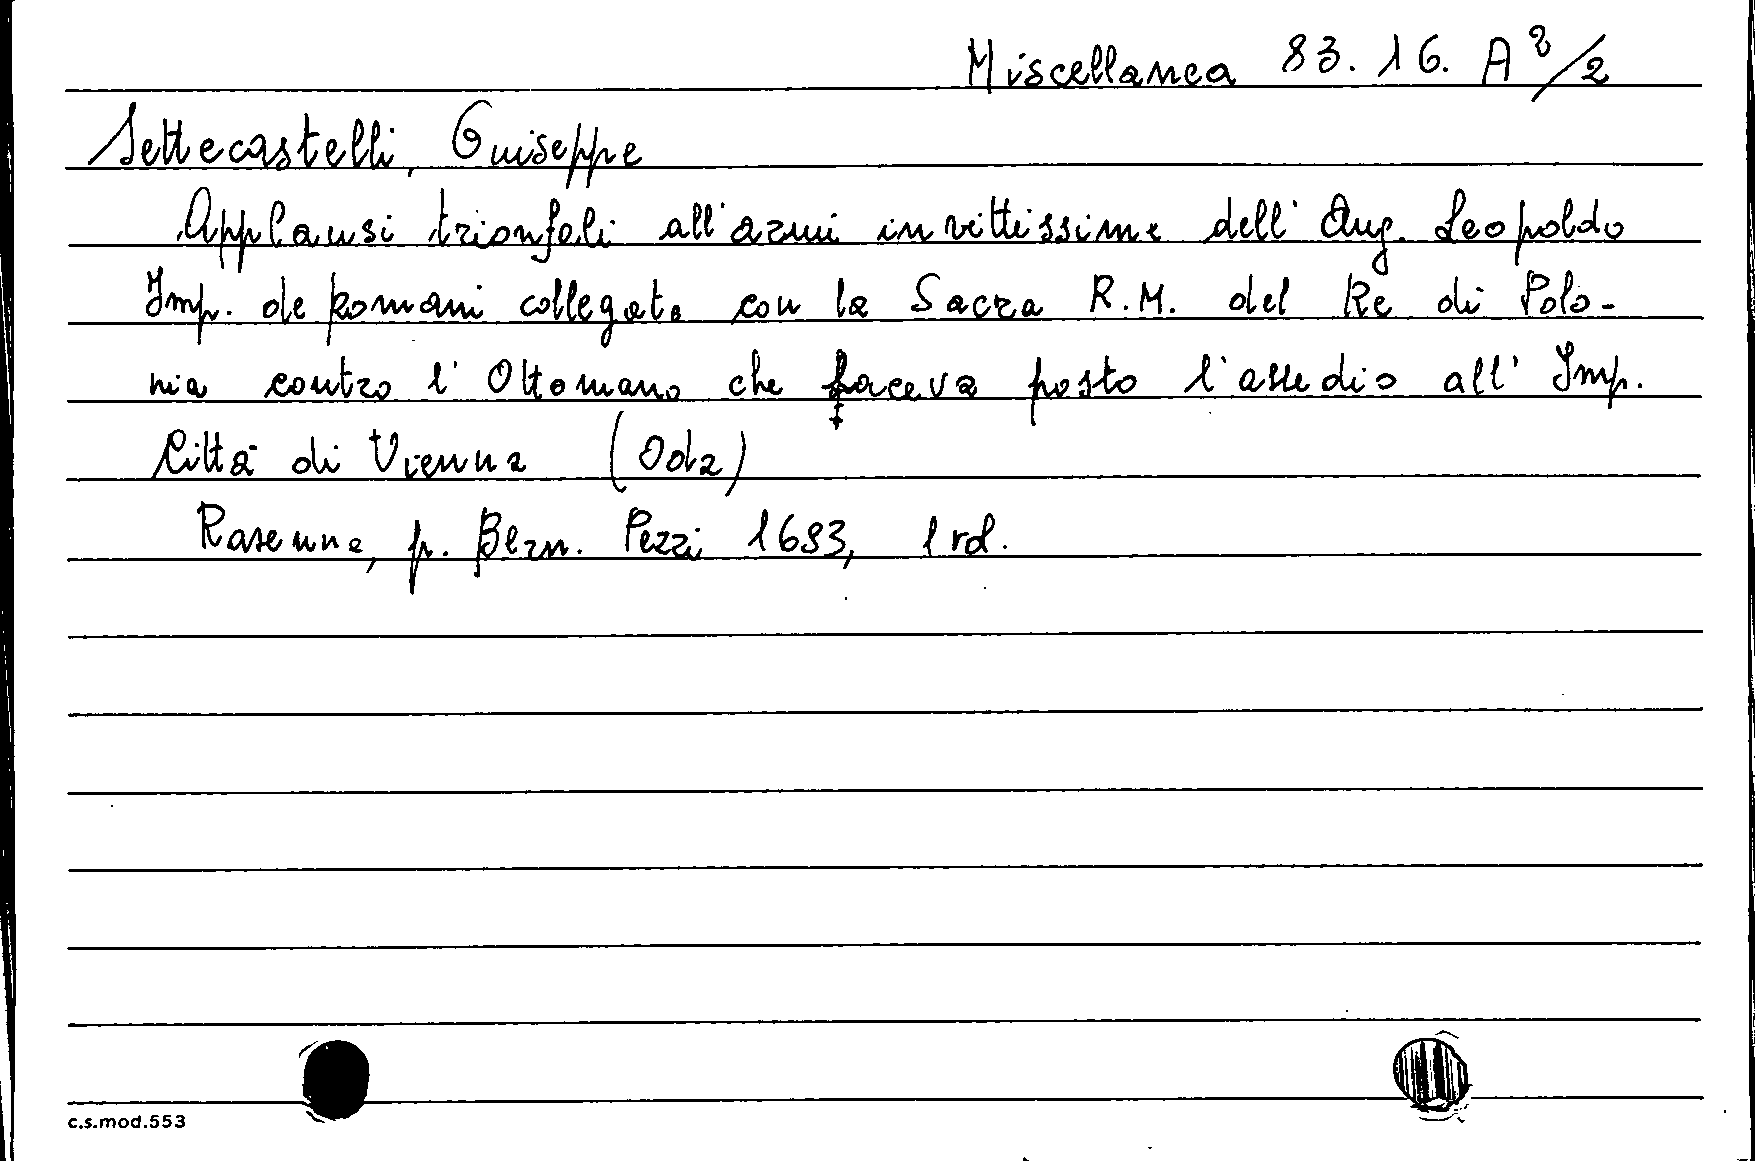 Miscellanea 83. 16. A 8/2
Settecastelli, Guiseppe
Applausi trionfali all'armi invittissime dell' Aug. Leopoldo
Imp. de Romani collegate con la Sacra R.M. del Re di Polo-
nia contro l' Ottomano che faceva posto l'assedio all' Imp.
Città di Vienna (Oda)
Ravenna, p. Bern. Pezzi 1683, 1 vol.
c.s.mod.553